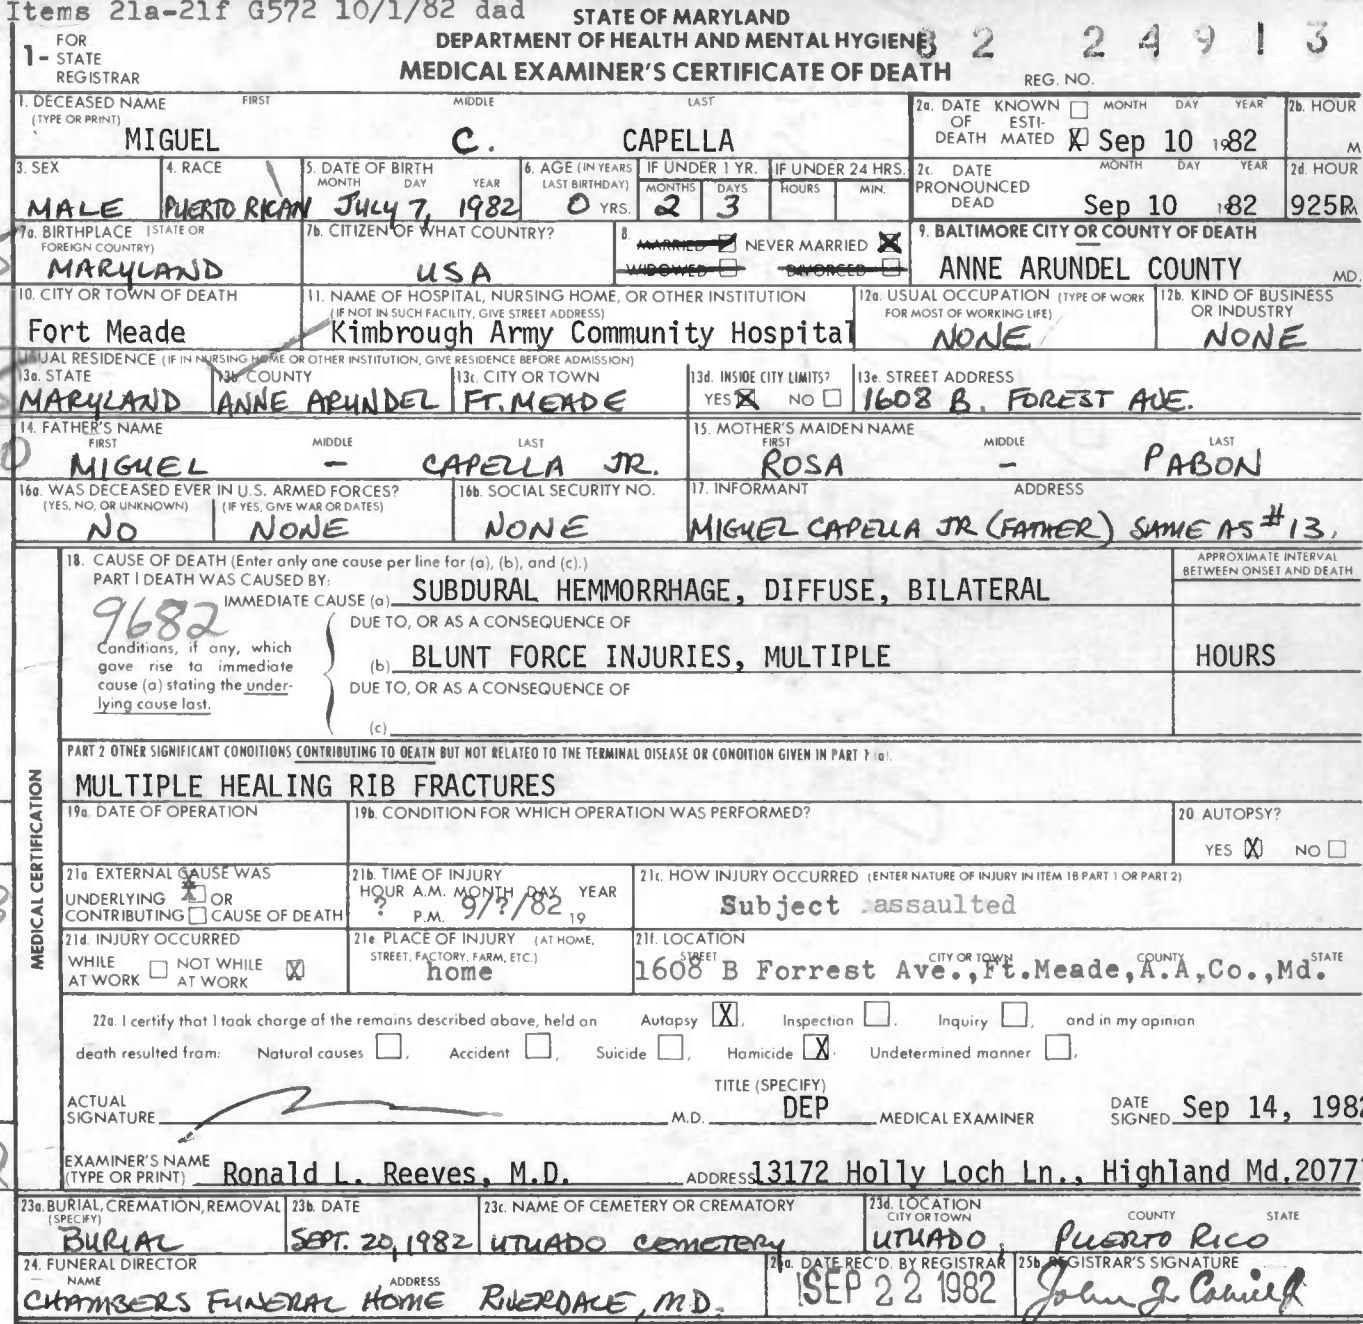 Items 21a-21f G572 10/1/82 dad
STATE OF MARYLAND
1- FOR STATE REGISTRAR
DEPARTMENT OF HEALTH AND MENTAL HYGIENE 82 24913
MEDICAL EXAMINER'S CERTIFICATE OF DEATH REG. NO.
1. DECEASED NAME (TYPE OR PRINT) FIRST MIDDLE LAST
MIGUEL C. CAPELLA
2a. DATE OF DEATH KNOWN ☐ ESTIMATED ☒ MONTH DAY YEAR Sep 10 1982
2b. HOUR M
3. SEX MALE
4. RACE PUERTO RICAN
5. DATE OF BIRTH MONTH DAY YEAR JULY 7, 1982
6. AGE (IN YEARS LAST BIRTHDAY) 0 YRS.
IF UNDER 1 YR. MONTHS 2 DAYS 3
IF UNDER 24 HRS. HOURS MIN.
2c. DATE PRONOUNCED DEAD MONTH DAY YEAR Sep 10 1982
2d. HOUR 925P M
7a. BIRTHPLACE (STATE OR FOREIGN COUNTRY) MARYLAND
7b. CITIZEN OF WHAT COUNTRY? USA
8. MARRIED ☐ NEVER MARRIED ☒
WIDOWED ☐ DIVORCED ☐
9. BALTIMORE CITY OR COUNTY OF DEATH
ANNE ARUNDEL COUNTY MD.
10. CITY OR TOWN OF DEATH Fort Meade
11. NAME OF HOSPITAL, NURSING HOME, OR OTHER INSTITUTION
(IF NOT IN SUCH FACILITY, GIVE STREET ADDRESS)
Kimbrough Army Community Hospital
12a. USUAL OCCUPATION (TYPE OF WORK FOR MOST OF WORKING LIFE) NONE
12b. KIND OF BUSINESS OR INDUSTRY NONE
USUAL RESIDENCE (IF IN NURSING HOME OR OTHER INSTITUTION, GIVE RESIDENCE BEFORE ADMISSION)
13a. STATE MARYLAND
13b. COUNTY ANNE ARUNDEL
13c. CITY OR TOWN FT. MEADE
13d. INSIDE CITY LIMITS? YES ☒ NO ☐
13e. STREET ADDRESS 1608 B. FOREST AVE.
14. FATHER'S NAME FIRST MIDDLE LAST
MIGUEL - CAPELLA JR.
15. MOTHER'S MAIDEN NAME FIRST MIDDLE LAST
ROSA - PABON
16a. WAS DECEASED EVER IN U.S. ARMED FORCES?
(YES, NO, OR UNKNOWN) NO (IF YES, GIVE WAR OR DATES) NONE
16b. SOCIAL SECURITY NO. NONE
17. INFORMANT ADDRESS
MIGUEL CAPELLA JR (FATHER) SAME AS #13.
MEDICAL CERTIFICATION
18. CAUSE OF DEATH (Enter only one cause per line for (a), (b), and (c).)
APPROXIMATE INTERVAL BETWEEN ONSET AND DEATH
PART I DEATH WAS CAUSED BY:
IMMEDIATE CAUSE (a) SUBDURAL HEMMORRHAGE, DIFFUSE, BILATERAL
9682
DUE TO, OR AS A CONSEQUENCE OF
Conditions, if any, which gave rise to immediate cause (a) stating the underlying cause last.
(b) BLUNT FORCE INJURIES, MULTIPLE HOURS
DUE TO, OR AS A CONSEQUENCE OF
(c)
PART 2 OTHER SIGNIFICANT CONDITIONS CONTRIBUTING TO DEATH BUT NOT RELATED TO THE TERMINAL DISEASE OR CONDITION GIVEN IN PART 1 (a).
MULTIPLE HEALING RIB FRACTURES
19a. DATE OF OPERATION
19b. CONDITION FOR WHICH OPERATION WAS PERFORMED?
20. AUTOPSY? YES ☒ NO ☐
21a. EXTERNAL CAUSE WAS
UNDERLYING ☒ OR
CONTRIBUTING ☐ CAUSE OF DEATH
21b. TIME OF INJURY
HOUR A.M. MONTH DAY YEAR
? P.M. 9/?/82 19
21c. HOW INJURY OCCURRED (ENTER NATURE OF INJURY IN ITEM 18 PART 1 OR PART 2)
Subject assaulted
21d. INJURY OCCURRED
WHILE AT WORK ☐ NOT WHILE AT WORK ☒
21e. PLACE OF INJURY (AT HOME, STREET, FACTORY, FARM, ETC.)
home
21f. LOCATION STREET CITY OR TOWN COUNTY STATE
1608 B Forrest Ave.,Ft.Meade,A.A,Co.,Md.
22a. I certify that I took charge of the remains described above, held an Autopsy ☒, Inspection ☐, Inquiry ☐, and in my opinion
death resulted from: Natural causes ☐, Accident ☐, Suicide ☐, Homicide ☒. Undetermined manner ☐.
ACTUAL SIGNATURE M.D. TITLE (SPECIFY) DEP MEDICAL EXAMINER DATE SIGNED Sep 14, 1982
EXAMINER'S NAME (TYPE OR PRINT) Ronald L. Reeves, M.D. ADDRESS 13172 Holly Loch Ln., Highland Md.20777
23a. BURIAL, CREMATION, REMOVAL (SPECIFY) BURIAL
23b. DATE SEPT. 20, 1982
23c. NAME OF CEMETERY OR CREMATORY UTUADO CEMETERY
23d. LOCATION CITY OR TOWN COUNTY STATE
UTUADO, PUERTO RICO
24. FUNERAL DIRECTOR NAME ADDRESS
CHAMBERS FUNERAL HOME RIVERDALE, M.D.
25a. DATE REC'D. BY REGISTRAR SEP 22 1982
25b. REGISTRAR'S SIGNATURE
John J.